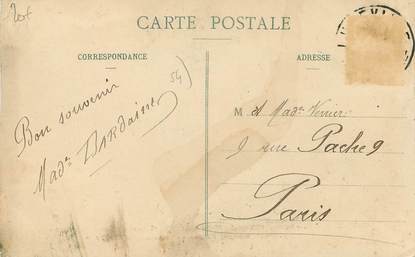 CARTE POSTALE
CORRESPONDANCE
ADRESSE
54)
Bon souvenir
Made
M et Made Verrier
9 rue Pache 9
Paris